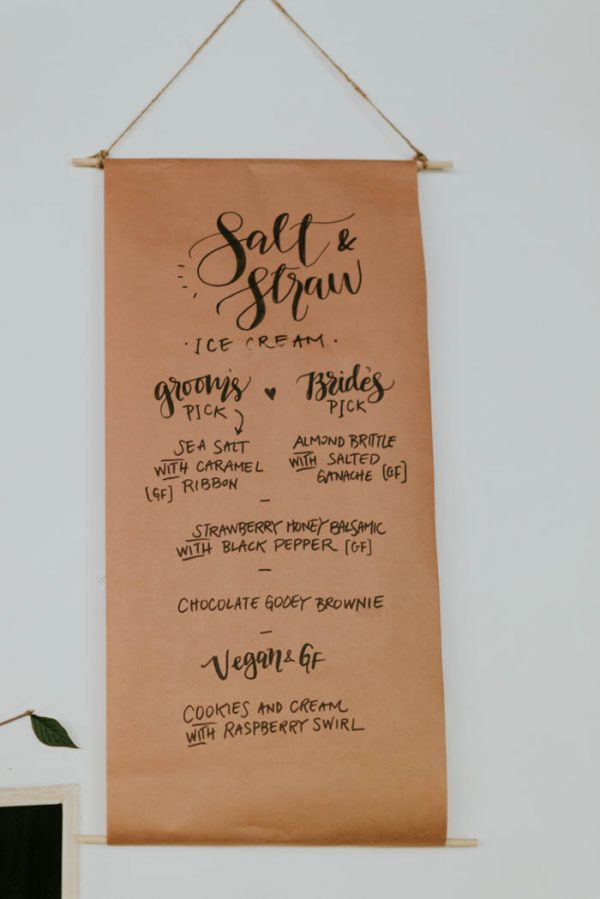 Salt &
Straw
· ICE CREAM ·
groom's
PICK
SEA SALT
WITH CARAMEL
[GF] RIBBON
Bride's
PICK
ALMOND BRITTLE
WITH SALTED
GANACHE [GF]
STRAWBERRY HONEY BALSAMIC
WITH BLACK PEPPER [GF]
CHOCOLATE GOOEY BROWNIE
Vegan & GF
COOKIES AND CREAM
WITH RASPBERRY SWIRL